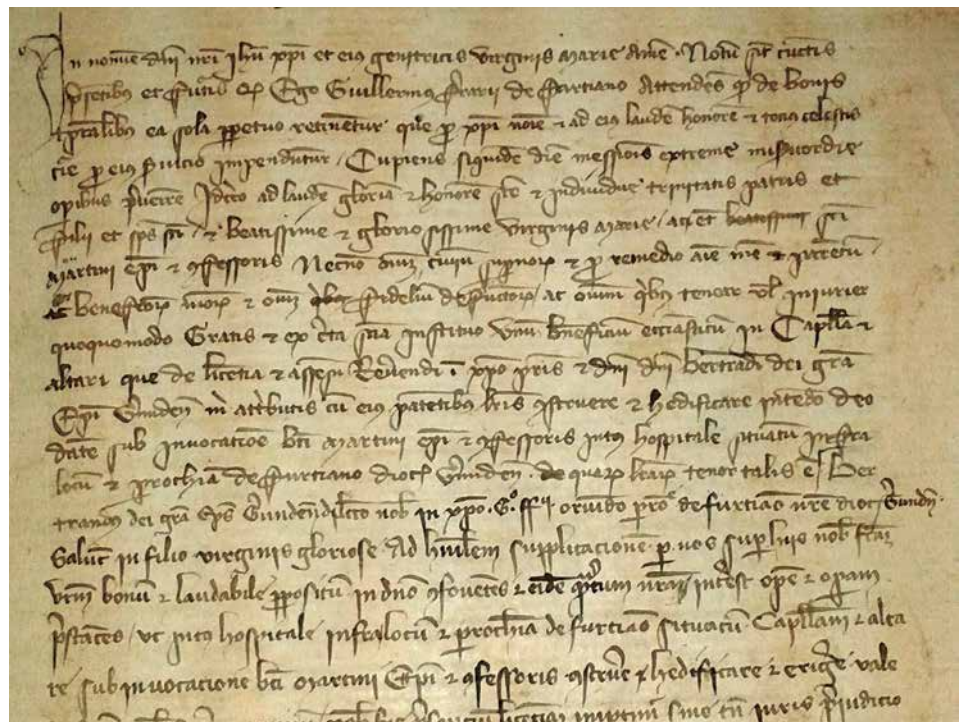 In nomine dni nri ihu xpi et eius genitricis virginis marie Amen. Notu sit cuctis
psetibus et futuris q Ego Guillermus frarii de furtiano Attendes q de bonis
tpralibus ea sola ppetuo retinetur que p xpi noie & ad eius laude honore & tocius celestis
cie p eius Suicio impendutur. Cupiens siquide die messiois extreme misicordie
opibus pveire Idcirco ad laude gloria & honore ste & individue trinitatis patris et
filii et sps sci. & beatissime & gloriosissime virginis marie. aciet sci
martini epi & cfessoris Necno oium civiu supnor & p remedio aie mee & parentu
ac benefcor meor & oium fideliu defuctor. ac oium qbus teneor vl injurier
quoquomodo Gratis & ex cta scia instituo unu bneficiu ecciasticu in Capella &
altari que de licetia & assesu Revendi i xpo pris & dni dni bertradi dei gra
Epi Giunden m attibutis cu eius patetibus lris cstruere & hedificare intedo deo
date sub invocatioe bti martini epi & cfessoris intus hospitale situatu infra
locu & prochia de furtiano dioc Giunden. de quarum lrar tenor talis e. Ber
trandus dei gra Eps Gunden dilcto nob in xpo. G. orundo de furtiao nre dioc Gunden
Salut in filio virginis gloriose Ad humilem supplicacione p vos sup hiis nob fcam
vrm bonu & laudabile ppositu in dno cfovetes & eide qtum nra intest ope & opam
pstates. ut intus hospitale infra locu & prochia de furtiao situatu. Capllam & alta
re sub invocacione bti martini Epi & cfessoris cstrue & hedificare & erige vale
licetiam imptim sine tn iuris pjudicio